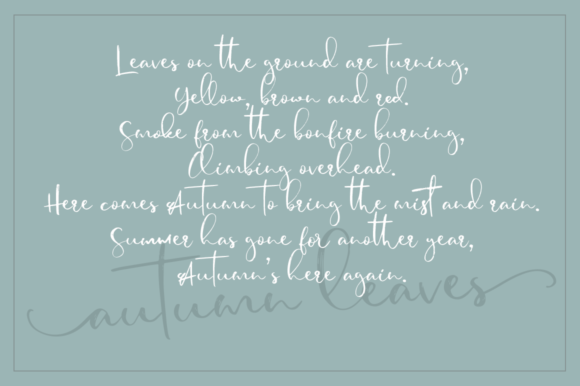 Leaves on the ground are turning,
Yellow, brown and red.
Smoke from the bonfire burning,
Climbing overhead.
Here comes Autumn to bring the mist and rain.
Summer has gone for another year,
Autumn's here again.
autumn leaves